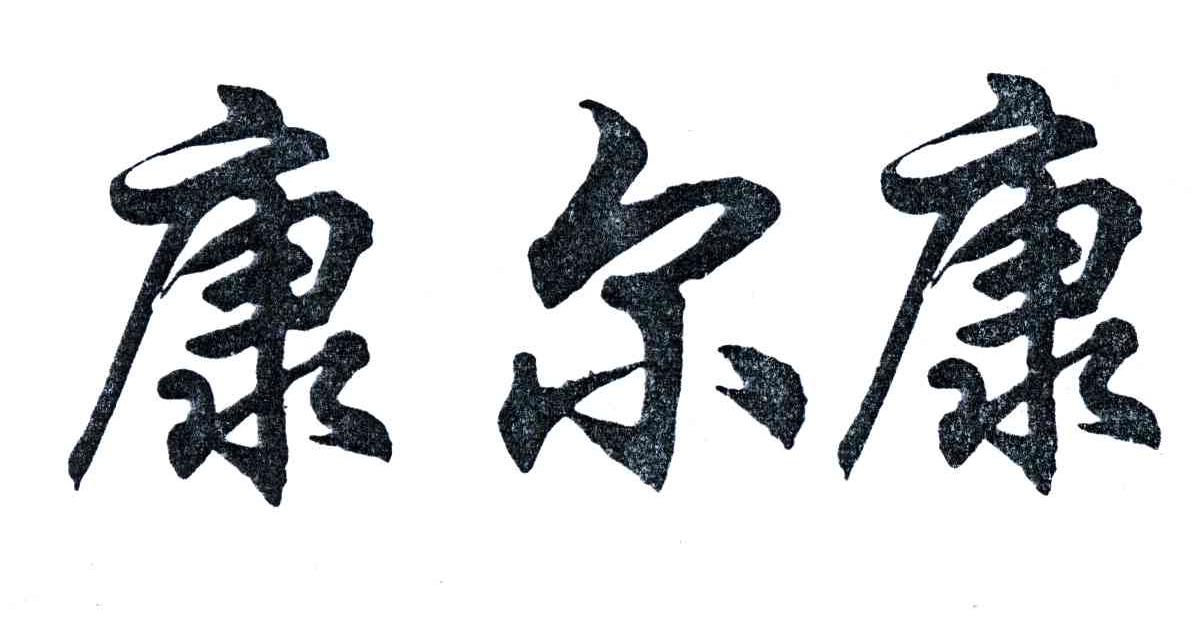 康尔康